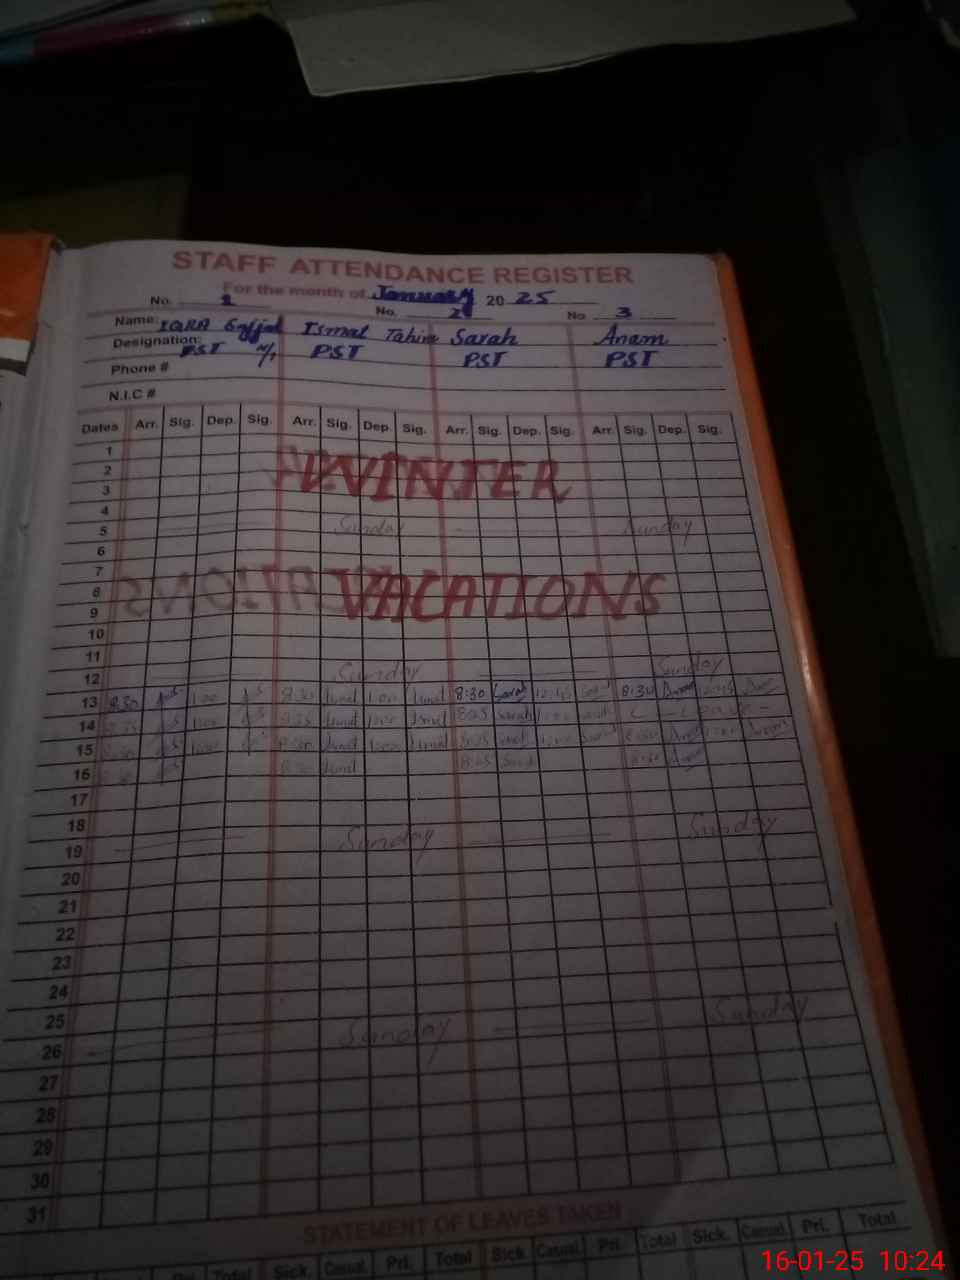 STAFF ATTENDANCE REGISTER
For the month of January 2025
No. 1 No. 2 No. 3
Name: IQRA Ismat Tahira Sarah Anam
Designation: PST PST PST PST
Phone #
N.I.C #
Dates Arr. Sig. Dep. Sig. Arr. Sig. Dep. Sig. Arr. Sig. Dep. Sig. Arr. Sig. Dep. Sig.
1
2 WINTER
3
4
5 Sunday Sunday
6
7
8 VACATIONS
9
10
11
12 Sunday Sunday
13 8:30 1:00 8:30 Ismat 1:00 Ismat 8:30 Sarah 12:45 Sarah 8:30 Anam 12:45 Anam
14 1:00 Ismat 1:00 Ismat 8:25 Sarah 1:00 Sarah Leave
15 8:30 1:00 8:30 Ismat 1:00 Ismat 8:25 Sarah 1:00 Sarah 8:30 Anam 1:00 Anam
16 8:30 8:30 Ismat 8:25 Sarah 8:30 Anam
17
18
19 Sunday Sunday
20
21
22
23
24
25
26 Sunday Sunday
27
28
29
30
31
STATEMENT OF LEAVES TAKEN
Pri. Total Sick. Casual. Pri. Total Sick. Casual. Pri. Total Sick. Casual. Pri. Total
16-01-25 10:24